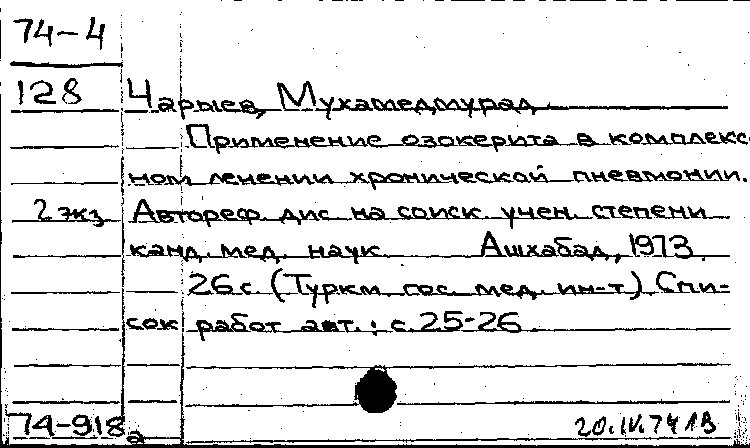 74-4
128 Чарыев, Мухамедмурад.
Применение озокерита в комплекс-
ном лечении хронической пневмонии.
2 экз Автореф. дис на соиск. учен. степени
канд. мед. наук Ашхабад, 1973.
26 с. (Туркм. гос. мед. ин-т.) Спи-
сок работ авт.: с. 25-26.
74-918а 20.IV.74